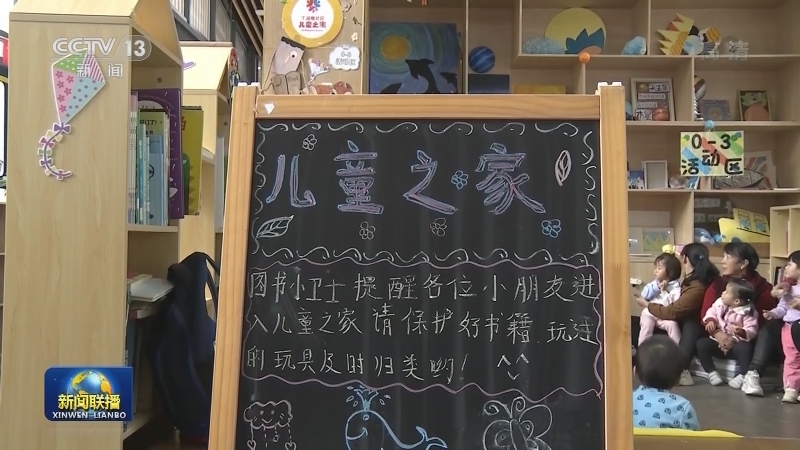 CCTV 13
新闻
高清
儿童之家
0-3
活动区
儿童之家
图书小卫士提醒各位小朋友进
入儿童之家请保护好书籍 玩过
的玩具及时归类哟！ ^^
新闻联播
XINWEN LIANBO